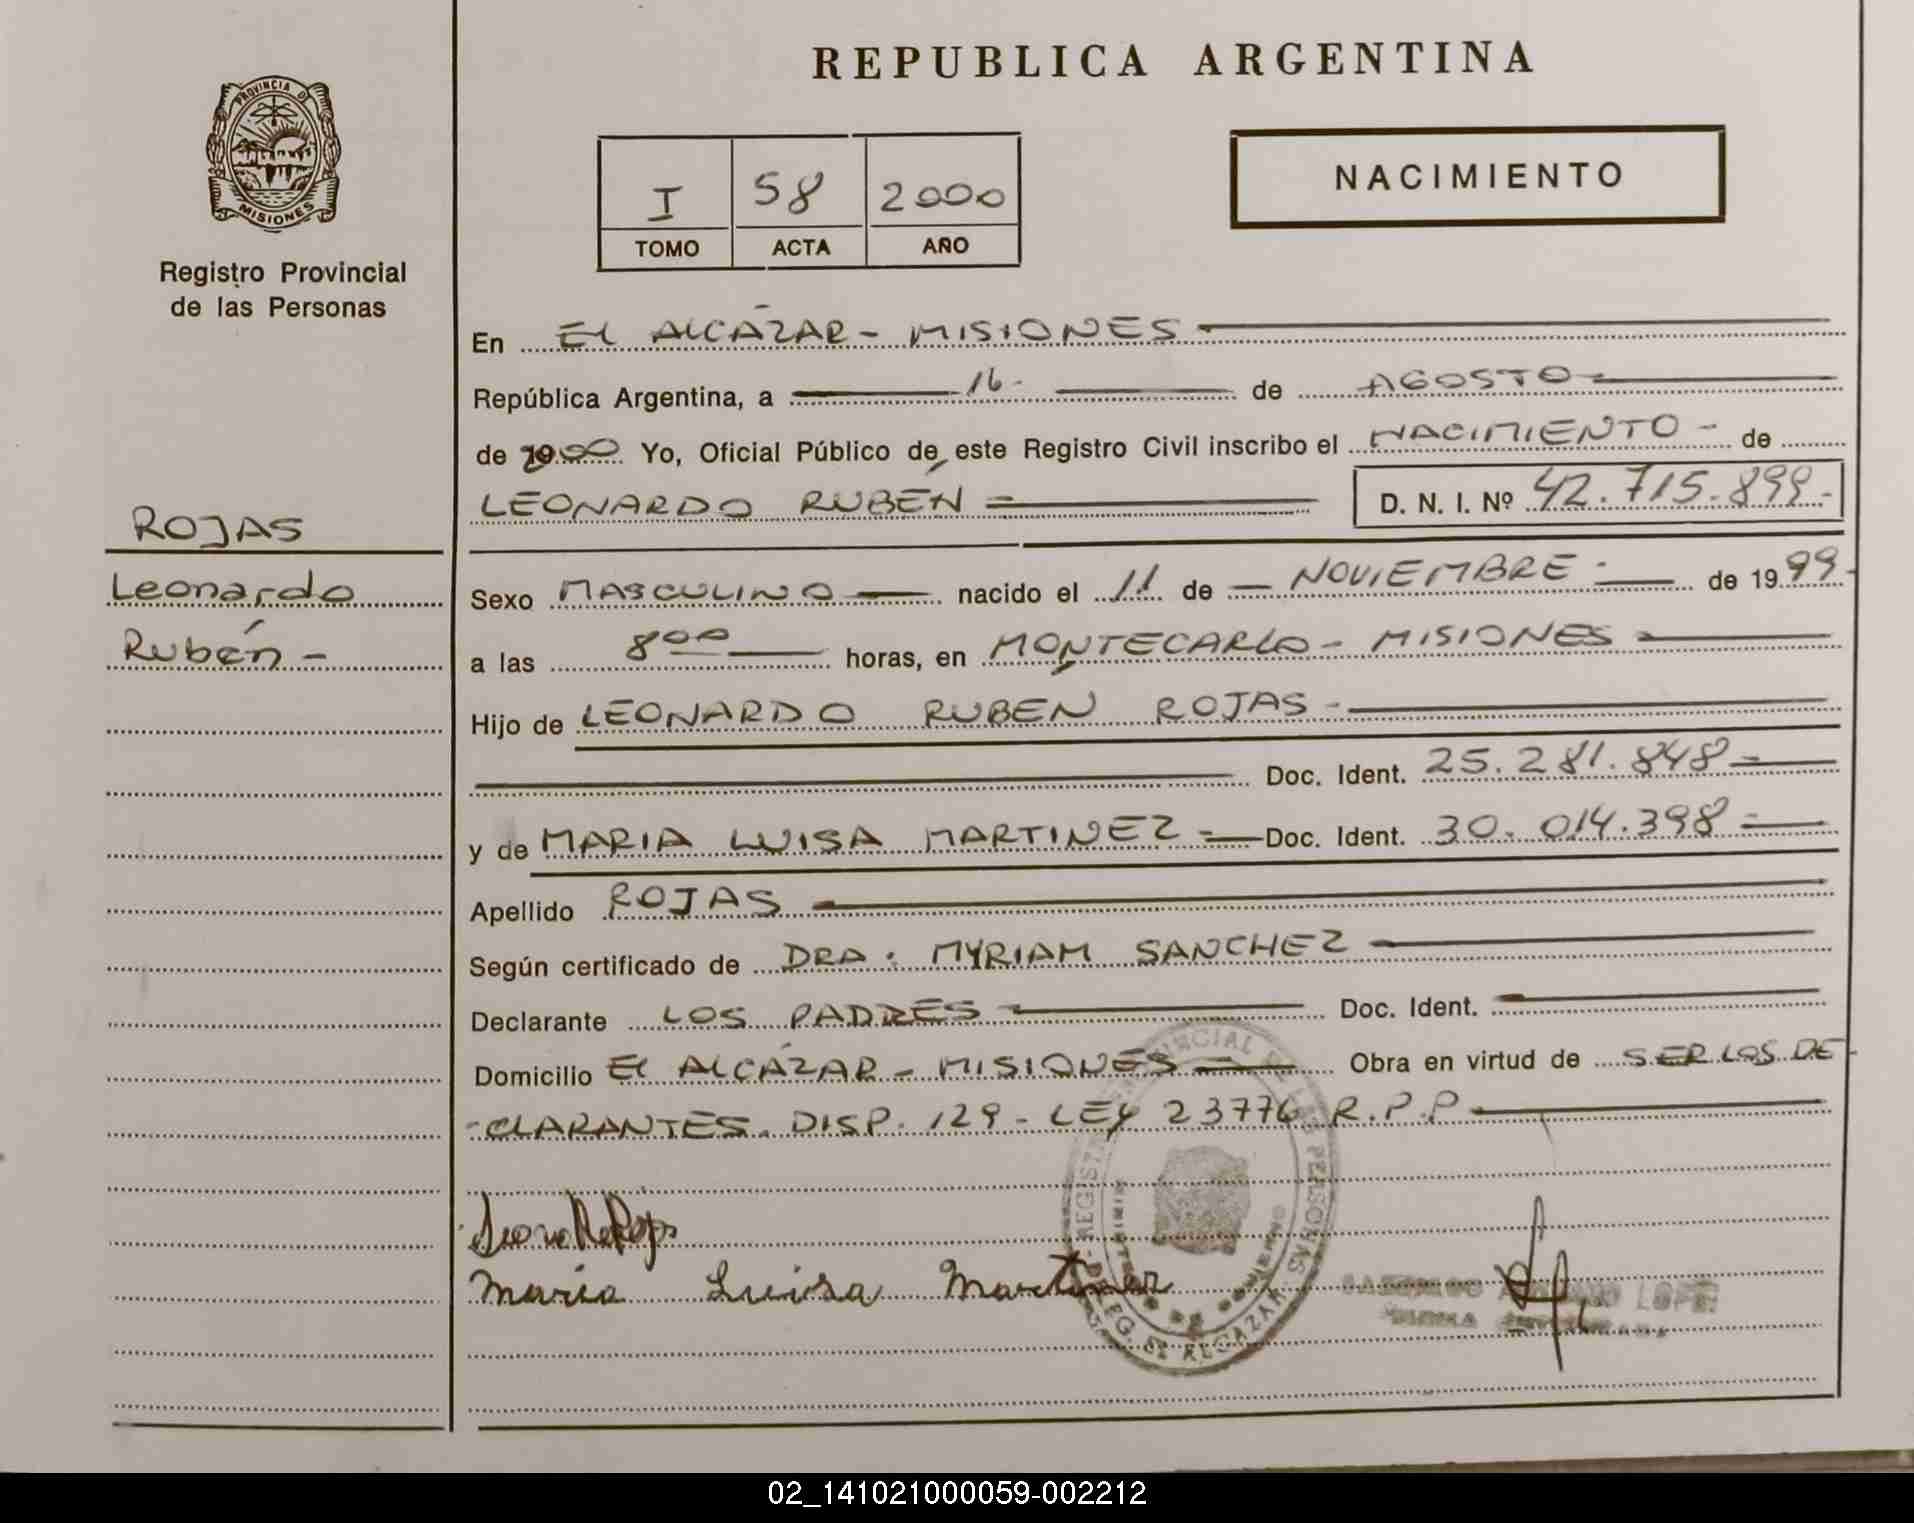 REPUBLICA ARGENTINA
PROVINCIA DE
MISIONES
Registro Provincial
de las Personas
NACIMIENTO
I 58 2000
TOMO ACTA AÑO
En EL ALCÁZAR - MISIONES
República Argentina, a 16 - de AGOSTO -
de 2000 Yo, Oficial Público de este Registro Civil inscribo el NACIMIENTO - de
LEONARDO RUBÉN = D. N. I. Nº 42.715.899 -
ROJAS
Leonardo
Rubén -
Sexo MASCULINO - nacido el 11 de - NOVIEMBRE - de 1999 -
a las 8 00 horas, en MONTECARLO - MISIONES -
Hijo de LEONARDO RUBEN ROJAS -
Doc. Ident. 25.281.848 -
y de MARIA LUISA MARTINEZ - Doc. Ident. 30.014.398 -
Apellido ROJAS
Según certificado de DRA. MYRIAM SANCHEZ
Declarante LOS PADRES Doc. Ident.
Domicilio EL ALCÁZAR - MISIONES - Obra en virtud de SER LOS DE-
-CLARANTES. DISP. 129 - LEY 23776 R.P.P
Maria Luisa Martinez
02_141021000059-002212